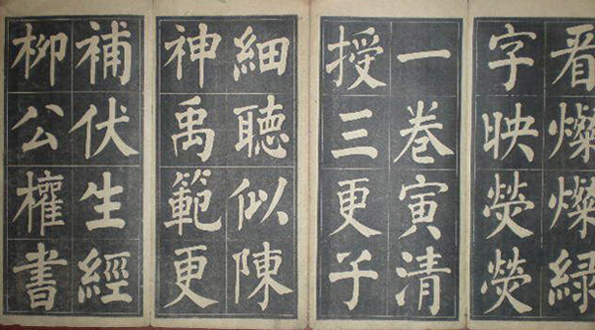 看燦燦緑
字映熒熒
一卷寅清
授三更子
細聽似陳
神禹範更
補伏生經
柳公權書